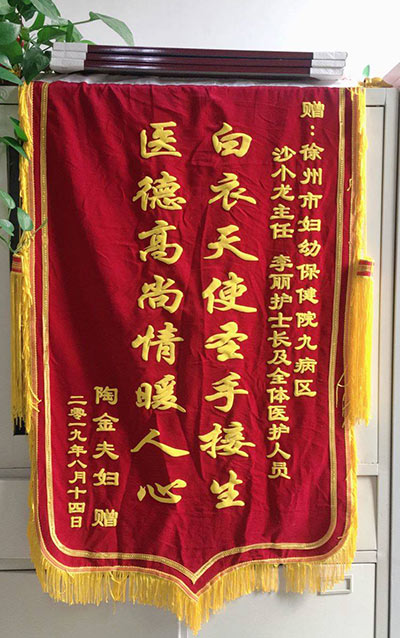 赠：徐州市妇幼保健院九病区
沙小龙主任 李丽护士长及全体医护人员
白衣天使圣手接生
医德高尚情暖人心
陶金夫妇 赠
二零一九年八月十四日